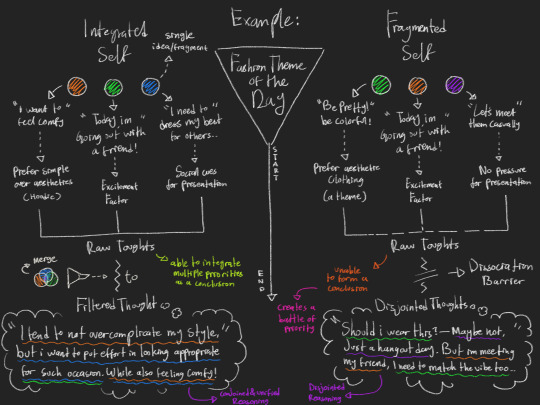 Example:
Integrated
Self
single
idea/fragment
Fragmented
Self
Fashion Theme
of the
Day
"I want to"
feel comfy
"Today, im"
Going out with
a friend!
"I need to"
dress my best
for others...
"Be Pretty!"
be colorful!
"Today, im"
Going out with
a friend!
"Let's meet"
them casually
Prefer simple
over aesthetics
(Hoodie)
Excitement
Factor
Social cues
for presentation
START
END
Prefer aesthetic
Clothing
(a theme)
Excitement
Factor
No pressure
for presentation
Raw Toughts
Raw Toughts
merge
to
able to integrate
multiple priorities
as a conclusion
unable
to form a
conclusion
Dissociation
Barrier
Creates a
battle of
priority
Filtered Thought
Disjointed Thoughts
"I tend to not overcomplicate my style,"
but i want to put effort in looking appropriate
for such occasion. While also feeling comfy!
Should i wear this?—Maybe not,
Just a hangout day. But im meeting
my friend, I need to match the vibe too...
Combined & unified
Reasoning
Disjointed
Reasoning